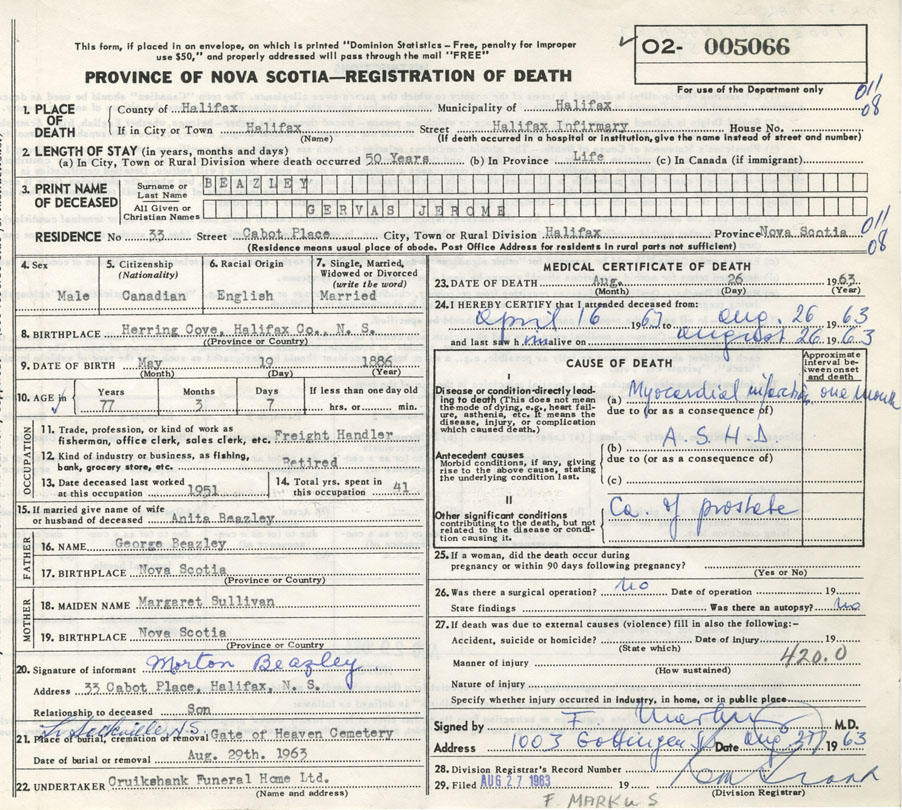 This form, if placed in an envelope, on which is printed "Dominion Statistics – Free, penalty for improper
use $50," and properly addressed will pass through the mail "FREE"
O2- 005066
PROVINCE OF NOVA SCOTIA—REGISTRATION OF DEATH
For use of the Department only
011
08
1. PLACE OF DEATH County of Halifax Municipality of Halifax
If in City or Town Halifax Street Halifax Infirmary House No.
(Name) (If death occurred in a hospital or institution, give the name instead of street and number)
2. LENGTH OF STAY (in years, months and days)
(a) In City, Town or Rural Division where death occurred 50 Years (b) In Province Life (c) In Canada (if immigrant)
3. PRINT NAME OF DECEASED Surname or Last Name BEAZLEY
All Given or Christian Names GERVAS JEROME
011
08
RESIDENCE No 33 Street Cabot Place City, Town or Rural Division Halifax Province Nova Scotia
(Residence means usual place of abode. Post Office Address for residents in rural parts not sufficient)
4. Sex Male
5. Citizenship (Nationality) Canadian
6. Racial Origin English
7. Single, Married, Widowed or Divorced (write the word) Married
8. BIRTHPLACE Herring Cove, Halifax Co., N. S.
(Province or Country)
9. DATE OF BIRTH May 19 1886
(Month) (Day) (Year)
10. AGE in Years 77 Months 3 Days 7 If less than one day old hrs. or min.
OCCUPATION
11. Trade, profession, or kind of work as
fisherman, office clerk, sales clerk, etc. Freight Handler
12. Kind of industry or business, as fishing,
bank, grocery store, etc. Retired
13. Date deceased last worked
at this occupation 1951
14. Total yrs. spent in
this occupation 41
15. If married give name of wife
or husband of deceased Anita Beazley
FATHER
16. NAME George Beazley
17. BIRTHPLACE Nova Scotia
(Province or Country)
MOTHER
18. MAIDEN NAME Margaret Sullivan
19. BIRTHPLACE Nova Scotia
(Province or Country)
20. Signature of informant Morton Beazley
Address 33 Cabot Place, Halifax, N. S.
Relationship to deceased Son
Sackville N.S.
21. Place of burial, cremation or removal Gate of Heaven Cemetery
Date of burial or removal Aug. 29th. 1963
22. UNDERTAKER Cruikshank Funeral Home Ltd.
(Name and address)
MEDICAL CERTIFICATE OF DEATH
23. DATE OF DEATH Aug. 26 1963
(Month) (Day) (Year)
24. I HEREBY CERTIFY that I attended deceased from:
April 16 196 to Aug. 26 1963
and last saw him alive on August 26 1963
CAUSE OF DEATH
Approximate interval between onset and death
I
Disease or condition directly leading to death (This does not mean the mode of dying, e.g., heart failure, asthenia, etc. It means the disease, injury, or complication which caused death.)
(a) Myocardial infarction one month
due to (or as a consequence of)
Antecedent causes
Morbid conditions, if any, giving rise to the above cause, stating the underlying condition last.
(b) A.S.H.D
due to (or as a consequence of)
(c)
II
Other significant conditions
contributing to the death, but not related to the disease or condition causing it.
Ca. of prostate
25. If a woman, did the death occur during
pregnancy or within 90 days following pregnancy?
(Yes or No)
26. Was there a surgical operation? No Date of operation 19
State findings Was there an autopsy? No
27. If death was due to external causes (violence) fill in also the following:–
Accident, suicide or homicide? Date of injury 19
(State which)
420.0
Manner of injury
(How sustained)
Nature of injury
Specify whether injury occurred in industry, in home, or in public place
Signed by F Markus M.D.
Address 1003 Gottingen St Date Aug 27 1963
28. Division Registrar's Record Number
29. Filed AUG 27 1963 19
(Division Registrar)
F. MARKUS